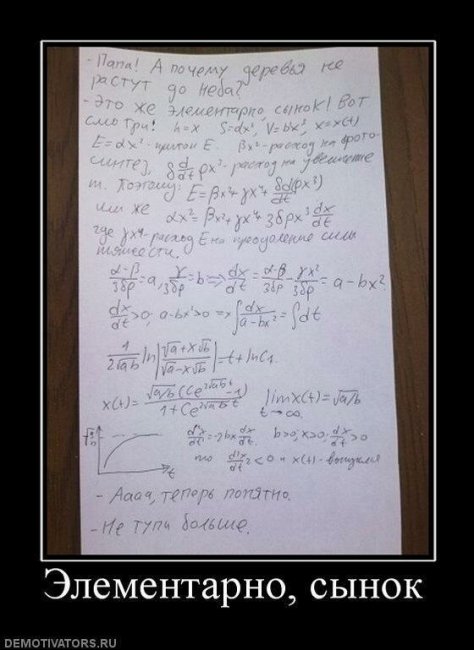 - Папа! А почему деревья не
растут до неба?
- Это же элементарно, сынок! Вот
смотри! h=x S=αx², V=bx³, x=x(t)
E=αx² - приток E. βx² - расход на фото-
синтез, δ d/dt ρx³ - расход на увеличение
m. Поэтому: E=βx²+γx⁴+δ d/dt(ρx³)
или же αx²=βx²+γx⁴+3δρx² dx/dt
где γx⁴ - расход E на преодоление силы
тяжести.
(α-β)/3δρ=a, γ/3δρ=b => dx/dt=(α-β)/3δρ-γx²/3δρ=a-bx²
dx/dt>0, a-bx²>0 => ∫dx/(a-bx²)=∫dt
1/(2√ab) ln|(√a+x√b)/(√a-x√b)|=t+lnC₁
x(t)=√a/b(Ce^(2√ab t)-1)/(1+Ce^(2√ab t)) lim x(t)=√a/b
t→∞
√a/b t
d²x/dt²=-2bx dx/dt. b>0, x>0, dx/dt>0
то d²x/dt²<0 и x(t) - выпукла
- Аааа, теперь понятно.
- Не тупи больше.
Элементарно, сынок
DEMOTIVATORS.RU